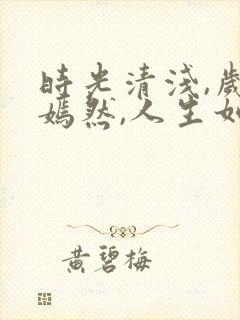 時光清淺,歲
嫣然,人生如
黄碧梅